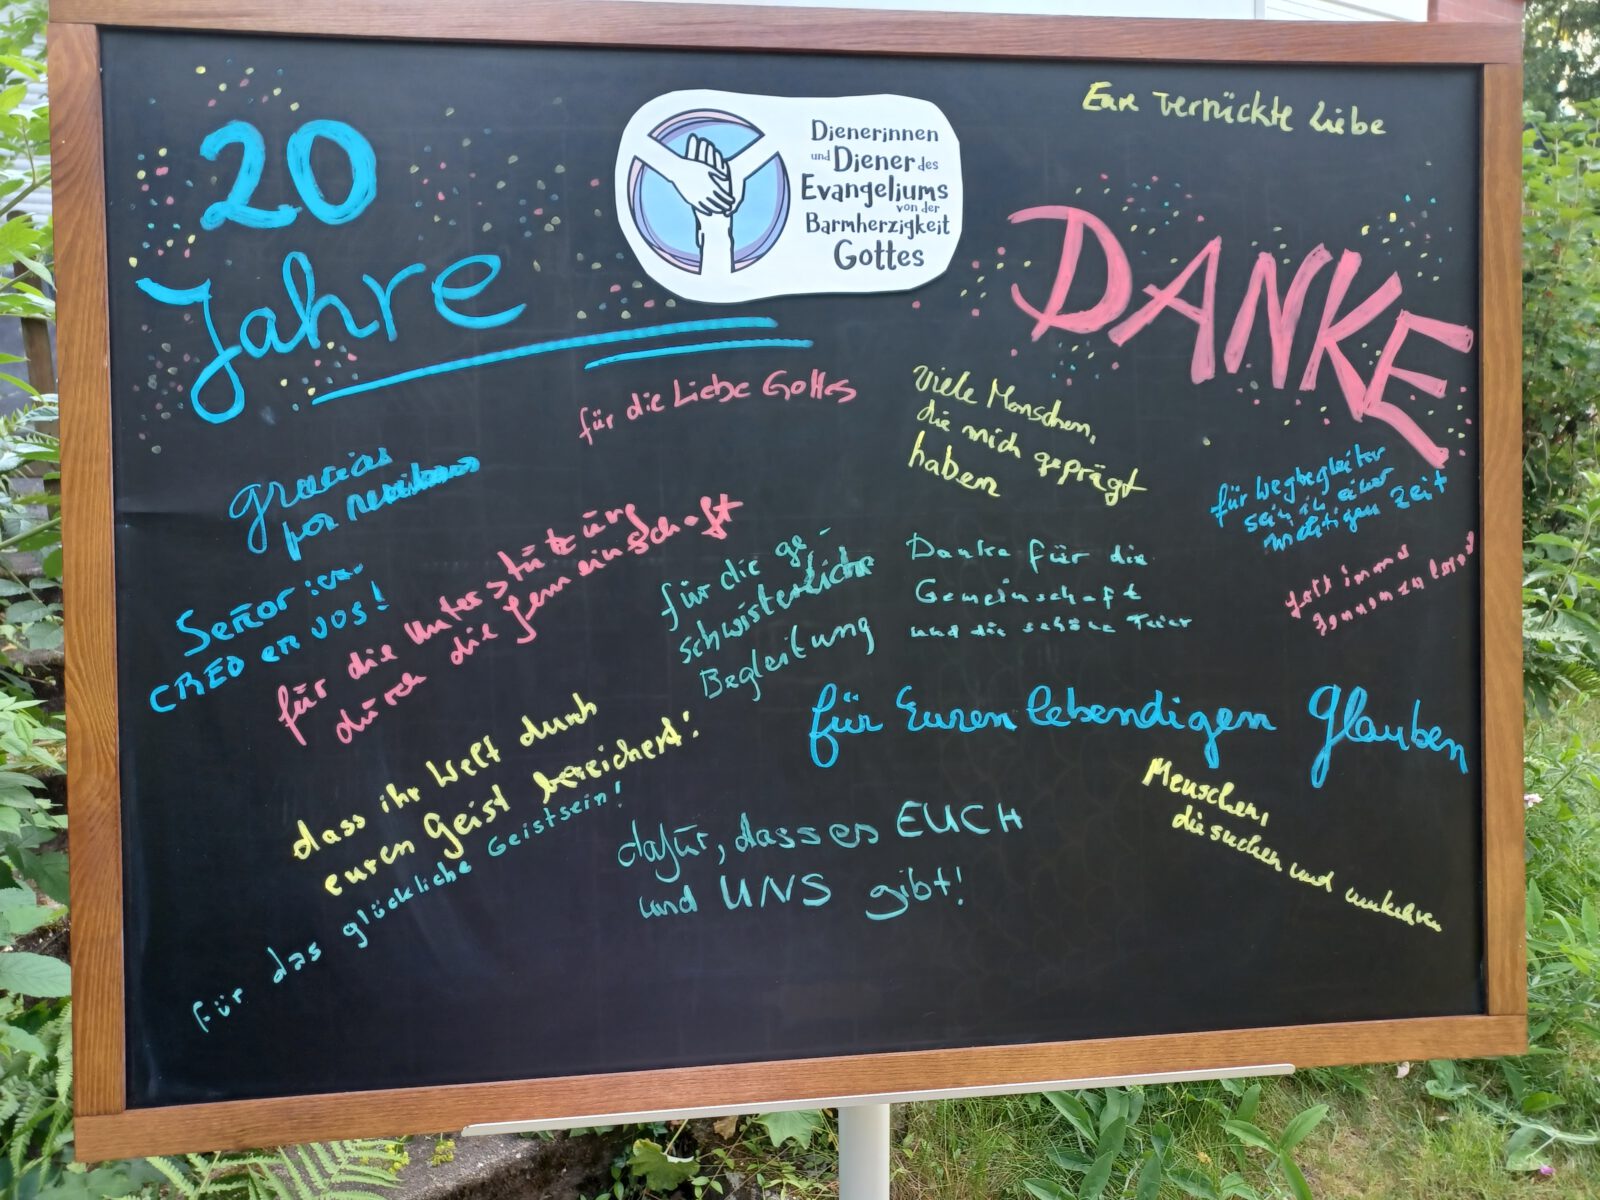 20
Jahre
Dienerinnen
und Diener des
Evangeliums
von der
Barmherzigkeit
Gottes
Eure verrückte Liebe
DANKE
für die Liebe Gottes
Viele Menschen,
die mich geprägt
haben
gracias
por
Señor
CREO en vos!
für die Unterstützung
durch die Gemeinschaft
für die ge-
schwisterliche
Begleitung
Danke für die
Gemeinschaft
und die schöne Feier
für Wegbegleiter
sein in einer
wichtigen Zeit
für Euren lebendigen Glauben
dass ihr Welt durch
euren Geist bereichert!
für das glückliche Geistsein!
dafür, dass es EUCH
und UNS gibt!
Menschen,
die suchen und umkehren